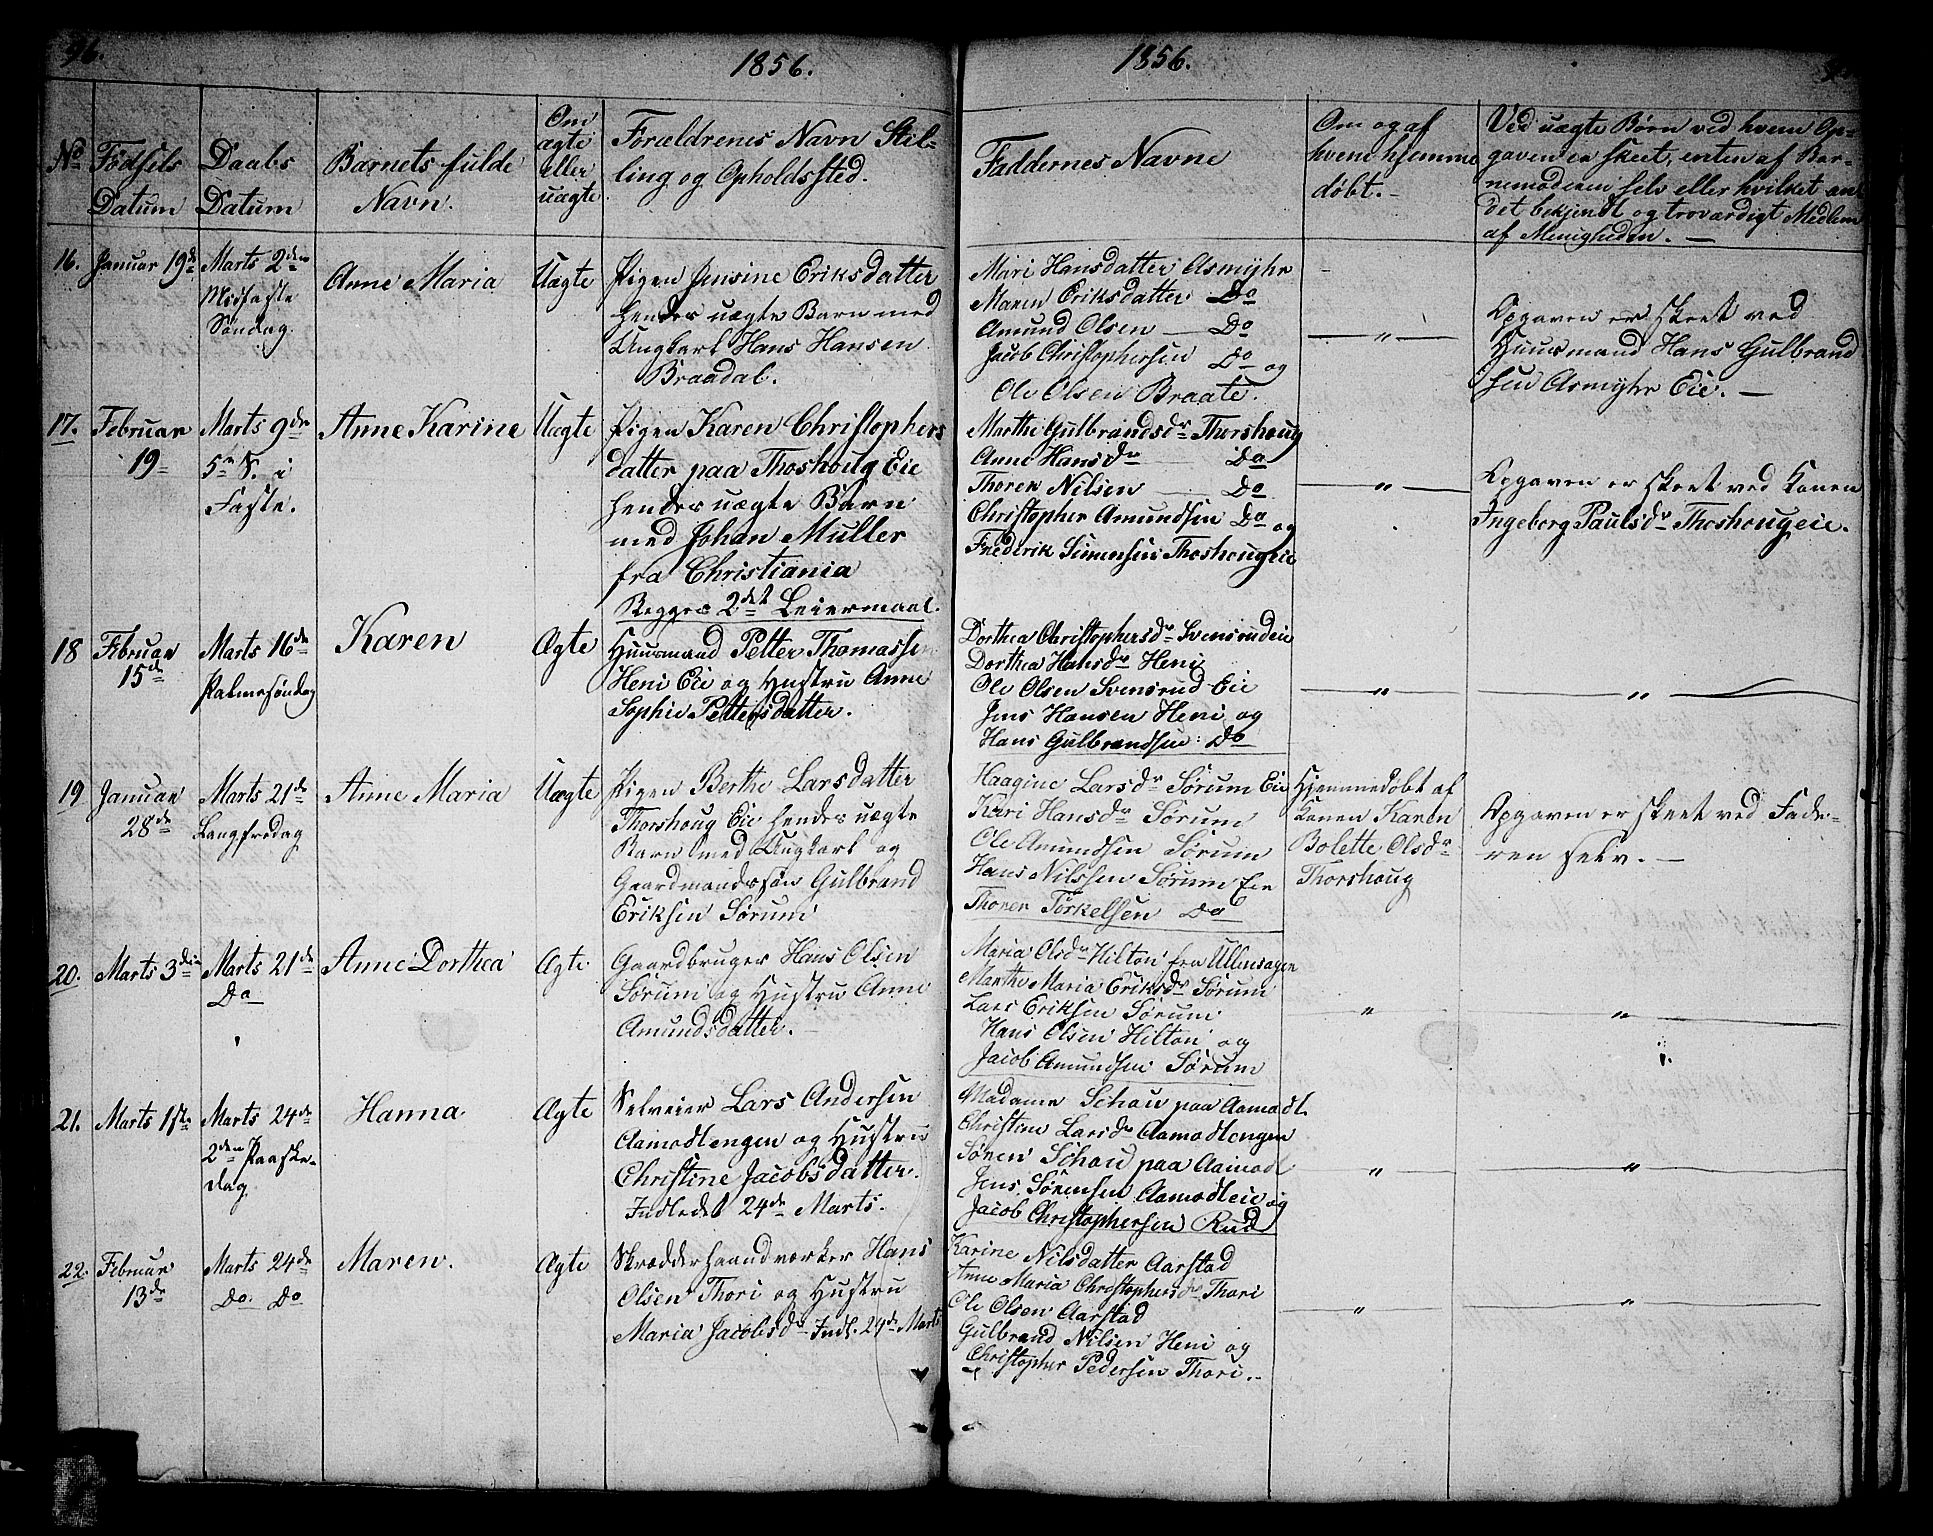 96.
1856.
No
Fødsels
Datum
Daabs
Datum
Barnets fulde
Navn.
Om
ægte
eller
uægte
Forældrenes Navn Stil-
ling og Opholdssted.
16.
Januar 19de
Marts 2den
Midfaste
Søndag.
Anne Maria
Uægte
Pigen Jensine Eriksdatter
hendes uægte Barn med
Ungkarl Hans Hansen
Braadal.
17.
Februar
19
Marts 9de
5te S. i
Faste.
Anne Karine
Uægte
Pigen Karen Christophers
datter paa Thoshoug Eie
hendes uægte Barn
med Johan Muller
fra Christiania
Begges 2det Leiermaal.
18
Februar
15de
Marts 16de
Palmesøndag
Karen
Ægte
Huusmand Petter Thomassen
Heni Eie og Hustru Anne
Sophie Pettersdatter.
19
Januar
28de
Marts 21de
Langfredag
Anne Maria
Uægte
Pigen Berthe Larsdatter
Thorshoug Eie hendes uægte
Barn med Ungkarl og
Gaardmandssøn Gulbrand
Eriksen Sørum
20.
Marts 3die
Marts 21de
Do
Anne Dorthea
Ægte
Gaardbruger Hans Olsen
Sørum og Hustru Anne
Amundsdatter.
21.
Marts 1ste
Marts 24de
2den Paaske-
dag
Hanna
Ægte
Selveier Lars Andersen
Aamodtengen og Hustru
Christine Jacobsdatter.
Indledet 24de Marts.
22.
Februar
13de
Marts 24de
Do. Do
Maren.
Ægte
Skrædderhaandværker Hans
Olsen Thori og Hustru
Maria Jacobsdr Indl. 24de Marts
1856.
Faddernes Navne
Om og af
hvem hjemme
døbt. -
Ved uægte Børn ved hvem Op-
gaven er skeet, enten af Bar-
nemoderen selv eller hvilket an
det bekjendt og troværdigt Medlem
af Menigheden. -
Mari Hansdatter Asmyhr
Maren Eriksdatter Do
Amund Olsen - Do
Jacob Christophersen Do og
Ole Olsen Braate.
- " -
Opgaven er skeet ved
Huusmand Hans Gulbrand
sen Asmyhr Eie. -
Marthe Gulbrandsdr Thorshoug
Anne Hansdr Do
Thoren Nilsen Do
Christopher Amundsen Do og
Frederik Simensen Thoshougeie
- " -
Opgaven er skeet ved Konen
Ingeborg Paulsdr Thoshougeie.
Dorthea Christophersdr Svensrudeie
Dorthea Hansdr Heni
Ole Olsen Svensrud Eie
Jens Hansen Heni og
Hans Gulbrandsen Do
- " -
- " -
Haagine Larsdr Sørum Eie
Kari Hansdr Sørum
Ole Amundsen Sørum
Hans Nilssen Sørum Eie
Thoren Torkelsen Do
Hjemmedøbt af
Konen Karen
Bolette Olsdr
Thorshoug
Opgaven er skeet ved Fade-
ren selv. -
Maria Olsdr Hilton fra Ullensager
Marthe Maria Eriksdr Sørum
Lars Eriksen Sørum
Hans Olsen Hilton og
Jacob Amundsen Sørum
- " -
- " -
Madame Schou paa Aamodt.
Christine Larsdr Aamodtengen
Søren Schou paa Aamodt
Jens Sørensen Aamodteie og
Jacob Christophersen Rud
- " -
- " -
Karine Nilsdatter Aarstad
Anne Maria Christophersdr Thori
Ole Olsen Aarstad
Gulbrand Nilsen Heni og
Christopher Pedersen Thori.
- " -
- " -